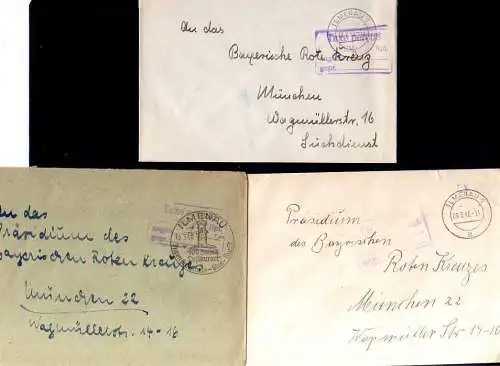 An das
Bayerische Rote Kreuz
München
Wagmüllerstr. 16
Suchdienst
ILMENAU
Taxe perçue
An das
Präsidium des
Bayerischen Roten Kreuzes
München 22
Wagmüllerstr. 14-18
ILMENAU
Präsidium
des Bayrischen
Roten Kreuzes
München 22
Wagmüller Str 14-16
ILMENAU
a